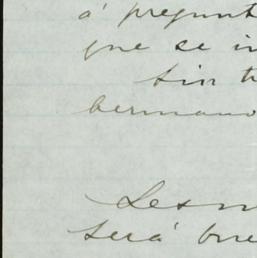 á pregunt
que se in
Sin t
hermano
Lesm
será bue